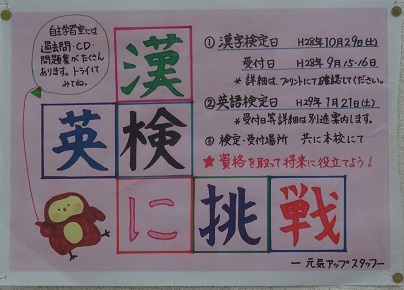 自主学習室には
過去問・CD・
問題集がたくさん
あります。トライして
みてね。
漢
英検
に挑戦
① 漢字検定日 H28年10月29日(土)
受付日 H28年9月15・16日
* 詳細は、プリントにて確認してください。
② 英語検定日 H29年1月21日(土)
* 受付日等詳細は別途案内します。
③ 検定・受付場所 共に本校にて
★ 資格を取って将来に役立てよう!
― 元気アップスタッフ ―